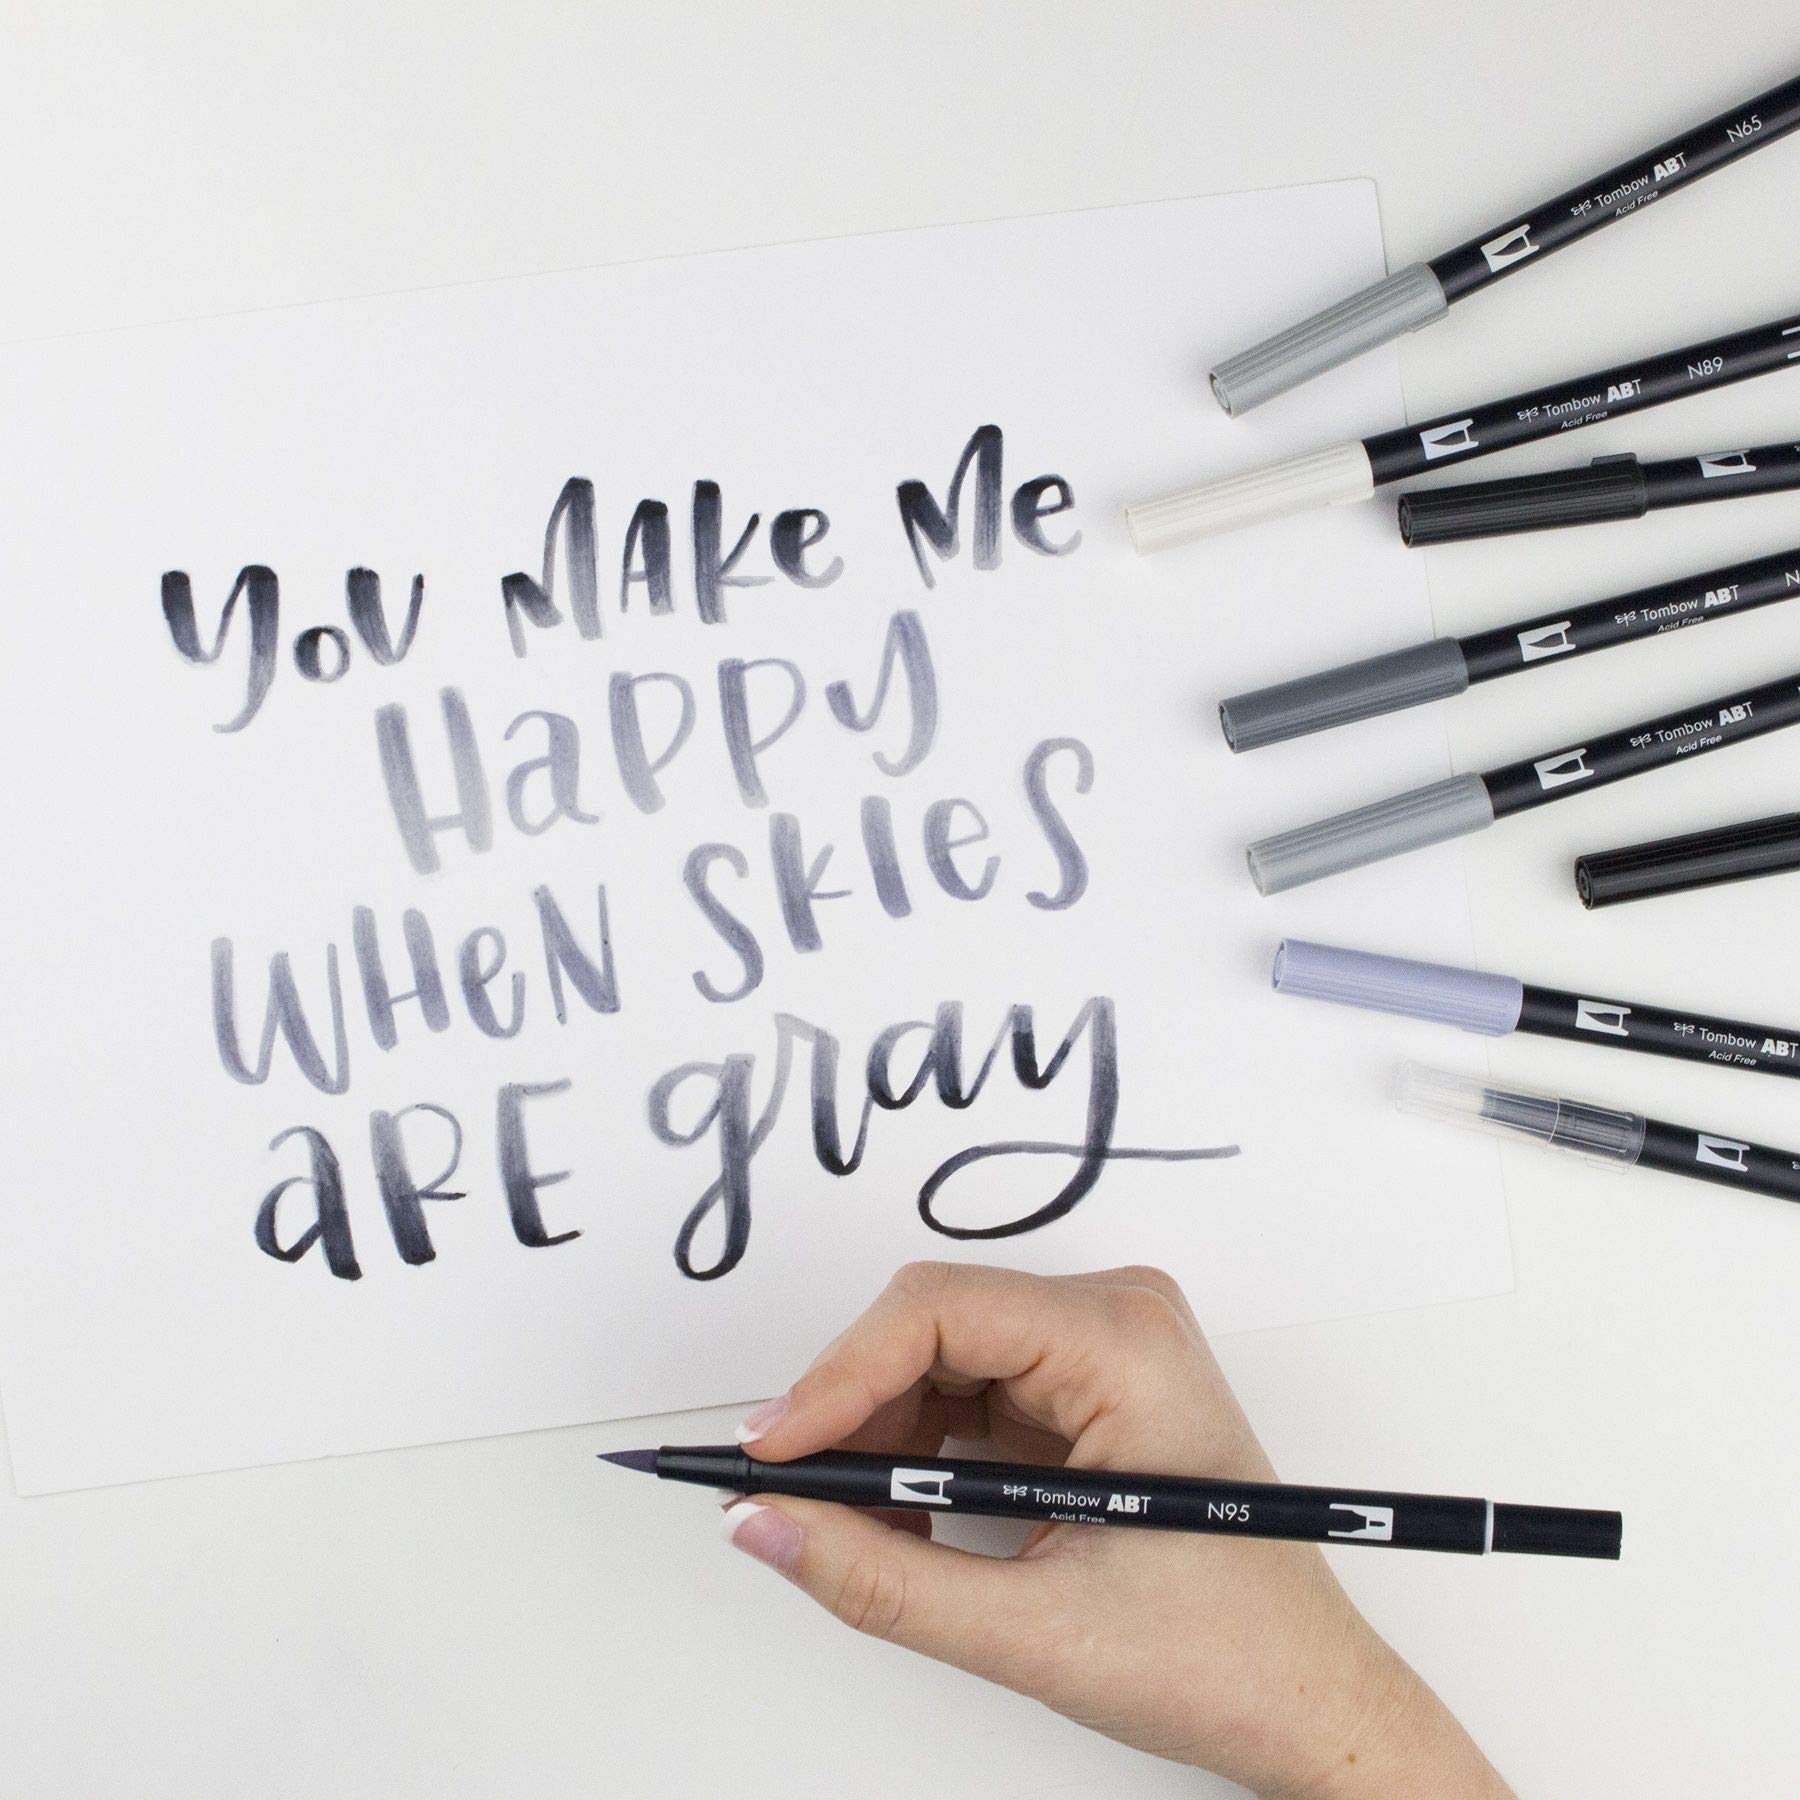 YOU MAKE Me
HaPPY
WHeN SKIeS
aRE gray
N65
Tombow ABT
Acid Free
N89
Tombow ABT
Acid Free
Tombow ABT
Acid Free
Tombow ABT
Acid Free
Tombow ABT
Acid Free
Tombow ABT N95
Acid Free